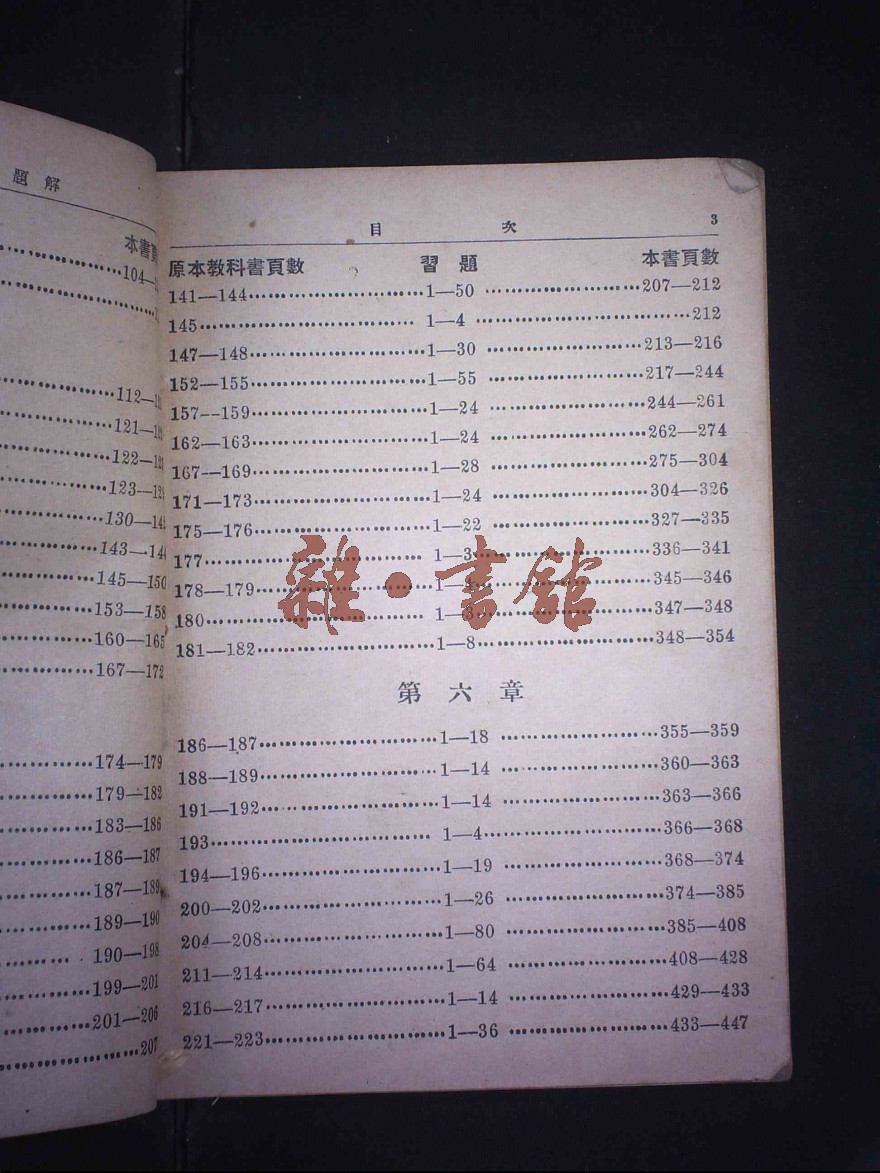 題解
本書頁
104—
112—
121—
122—
123—
130—
143—144
145—150
153—158
160—165
167—172
174—179
179—182
183—186
186—187
187—189
189—190
190—198
199—201
201—206
207
目 次 3
原本教科書頁數 習題 本書頁數
141—144………………………1—50………………………207—212
145………………………1—4………………………212
147—148………………………1—30………………………213—216
152—155………………………1—55………………………217—244
157--159………………………1—24………………………244—261
162—163………………………1—24………………………262—274
167—169………………………1—28………………………275—304
171—173………………………1—24………………………304—326
175—176………………………1—22………………………327—335
177………………………1—3………………………336—341
178—179………………………1—4………………………345—346
180………………………1—3………………………347—348
181—182………………………1—8………………………348—354
雜·書館
第六章
186—187………………………1—18………………………355—359
188—189………………………1—14………………………360—363
191—192………………………1—14………………………363—366
193………………………1—4………………………366—368
194—196………………………1—19………………………368—374
200—202………………………1—26………………………374—385
204—208………………………1—80………………………385—408
211—214………………………1—64………………………408—428
216—217………………………1—14………………………429—433
221—223………………………1—36………………………433—447